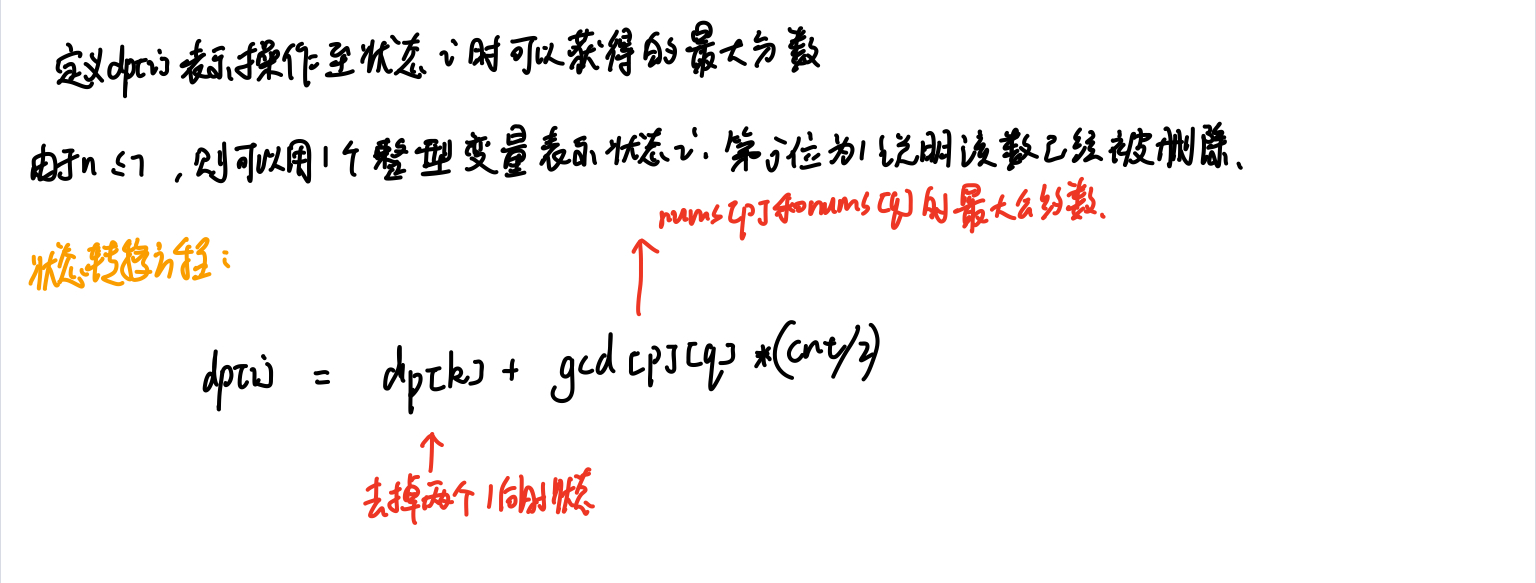 定义dp[i]表示操作至状态i时可以获得的最大分数
由于n≤7,则可以用1个整型变量表示状态i.第j位为1说明该数已经被删除、
nums[p]和nums[q]的最大公约数.
状态转移方程:
dp[i] = dp[k] + gcd[p][q] *(cnt/2)
去掉两个1后的状态